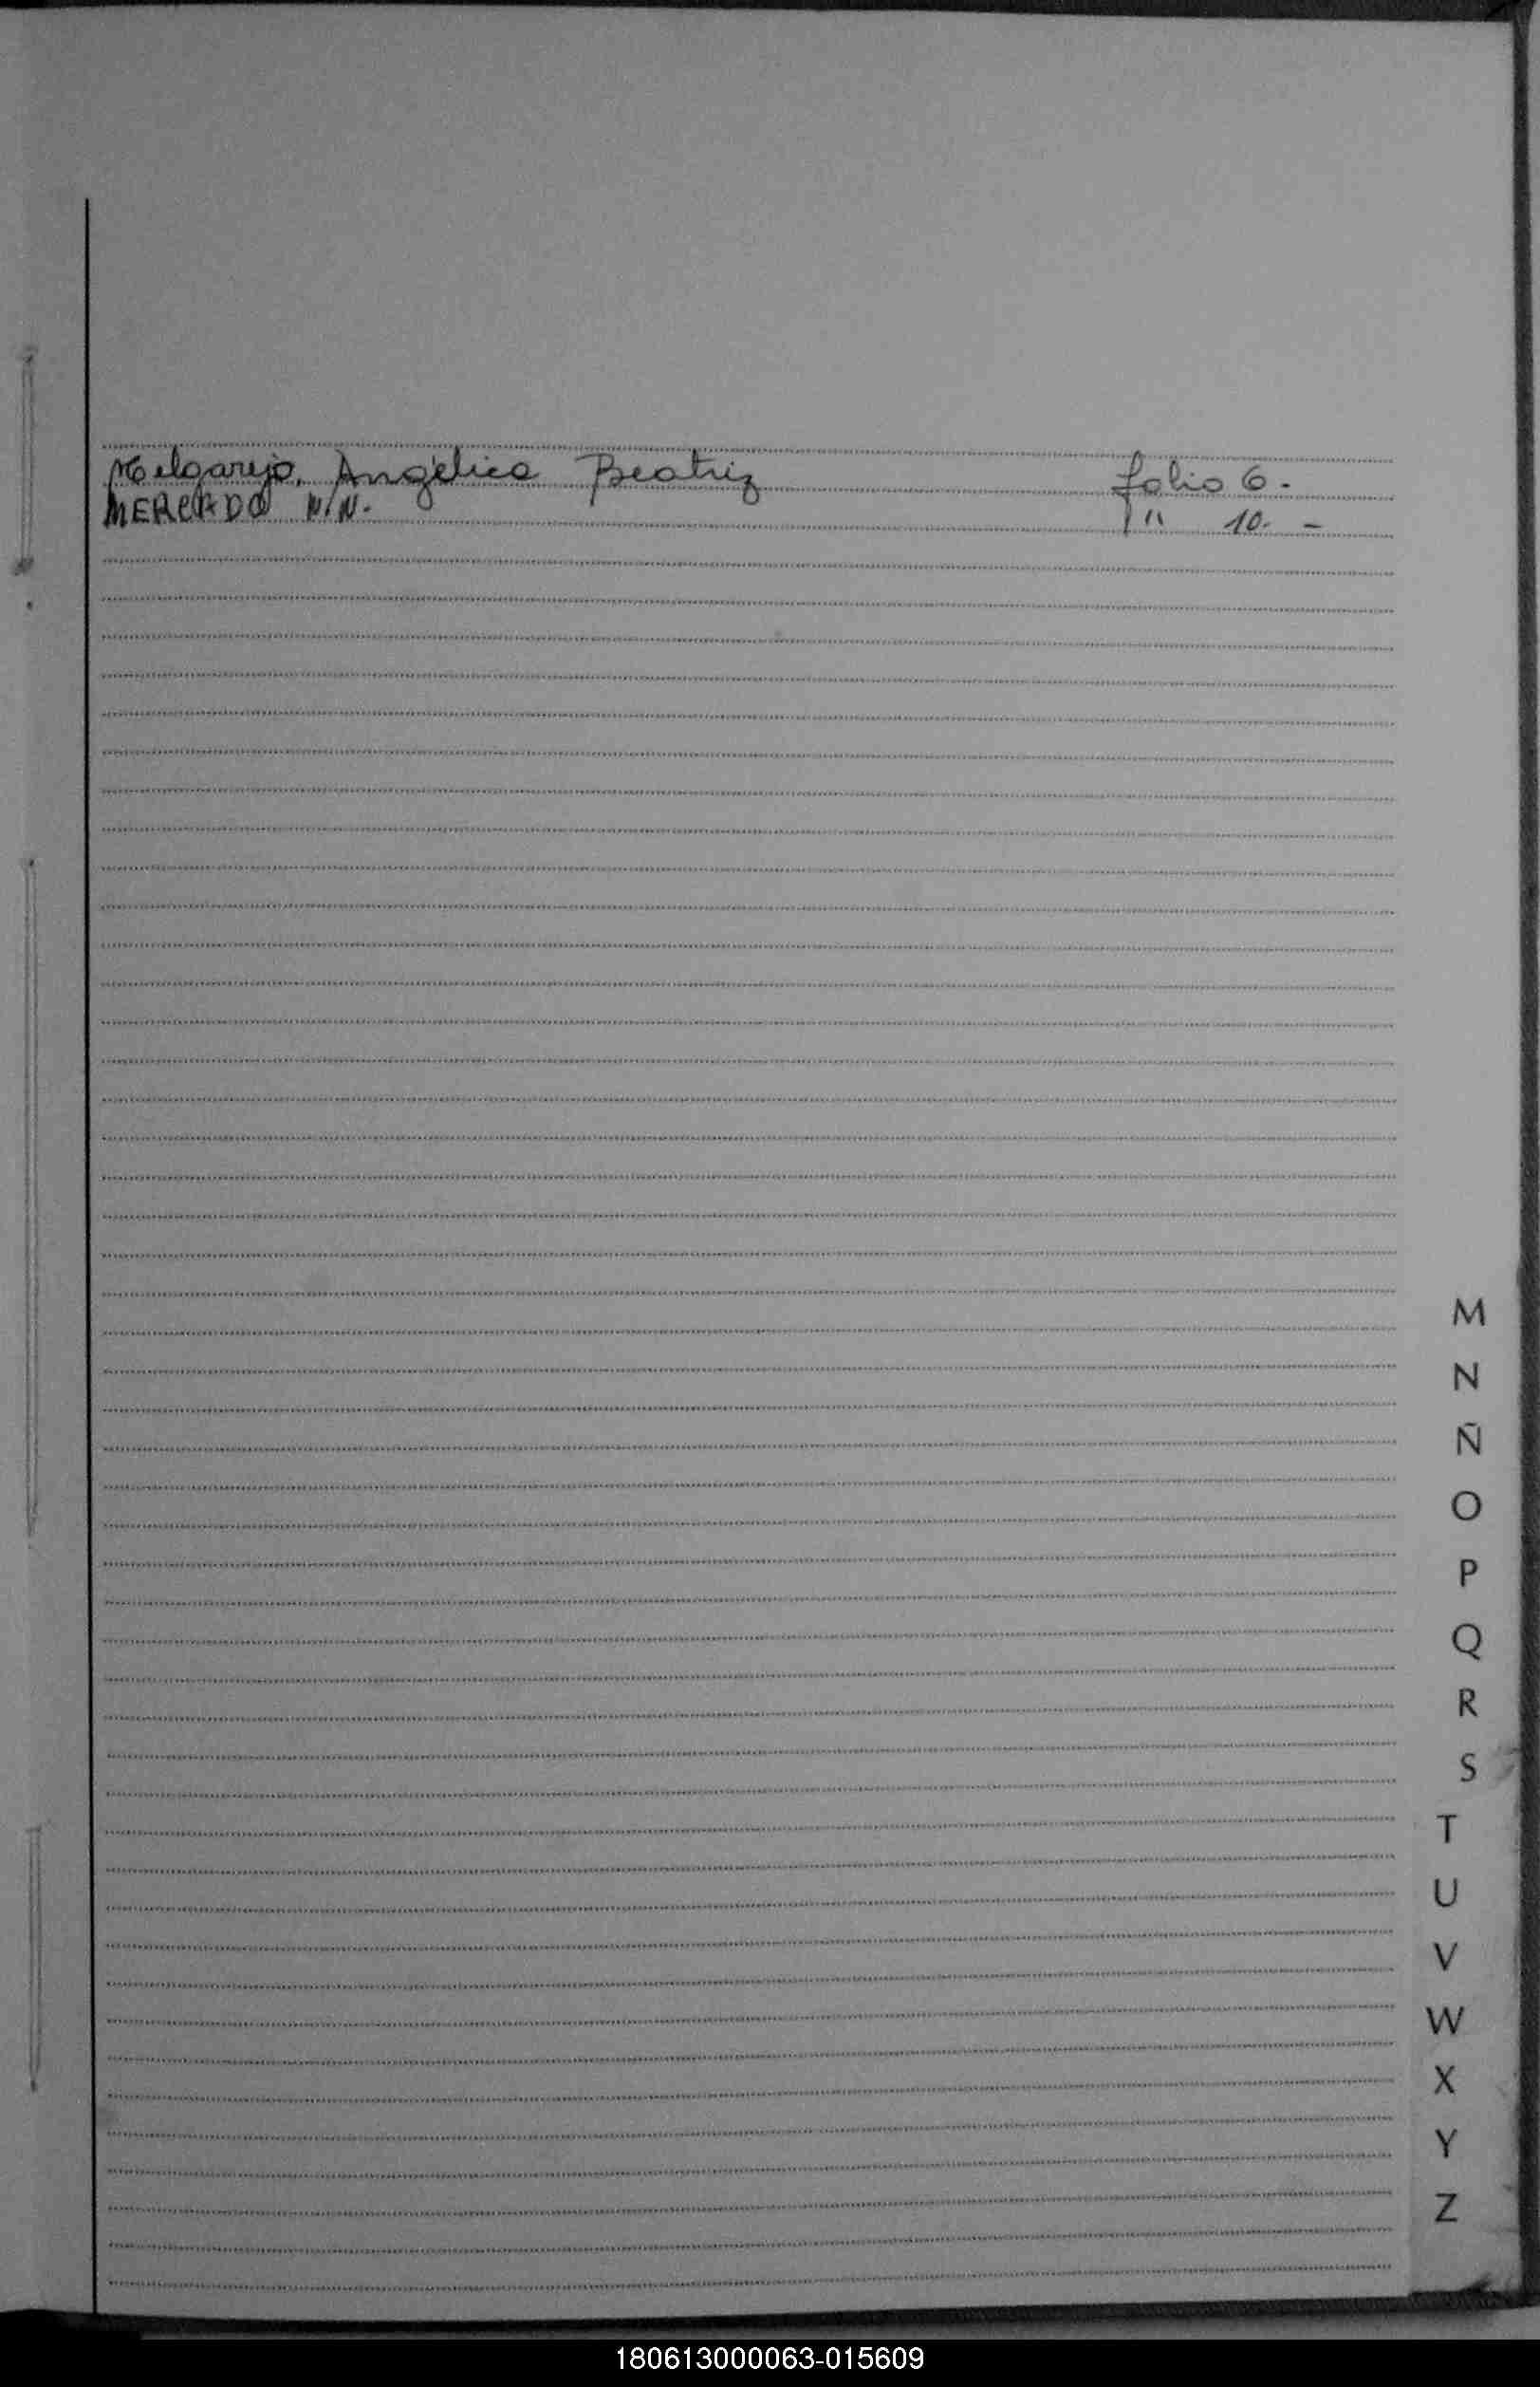 Melgarejo, Angélica Beatriz folio 6.
MERCADO N/N. " 10. -
M
N
Ñ
O
P
Q
R
S
T
U
V
W
X
Y
Z
180613000063-015609